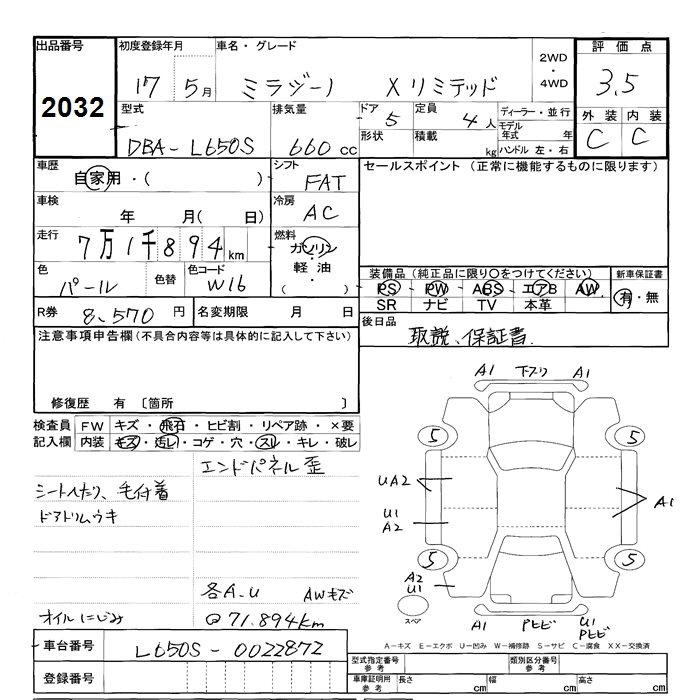 出品番号 初度登録年月 車名・グレード 2WD ・ 4WD 評価点
2032 17 5月 ミラジーノ Xリミテッド 3.5
型式 排気量 ドア 定員 ディーラー・並行 外装 内装
DBA-L650S 660cc 5 4人 モデル年式 年 C C
形状 積載 kg ハンドル 左・右
車歴 シフト セールスポイント (正常に機能するものに限ります)
自家用・( ) FAT
車検 冷房
年 月(日) AC
走行 燃料
7万1千894km ガソリン
軽油
( )
色 色替 色コード 装備品(純正品に限り○をつけてください) 新車保証書
パール W16 PS PW ABS エアB AW 有・無
SR ナビ TV 本革
R券 8,570円 名変期限 月 日 後日品
取説、保証書
注意事項申告欄(不具合内容等は具体的に記入して下さい)
修復歴 有 〔箇所 〕
検査員 FW キズ・飛石・ヒビ割・リペア跡・×要
記入欄 内装 キズ・汚レ・コゲ・穴・スレ・キレ・破レ
エンドパネル歪
シートヘたり、毛付着
ドアトリムウキ
各A.U AWキズ
オイルにじみ @71.894km
車台番号 L650S-0022872
登録番号
A1 下スリ A1
5 5
UA2 A1
U1
A2
5 5
A2
U1
スペア
A1 Pヒビ U1
Pヒビ
A-キズ E-エクボ U-凹み W-補修跡 S-サビ C-腐食 XX-交換済
型式指定番号 参考 類別区分番号 参考
車庫証明用 参考 長さ cm 幅 cm 高さ cm